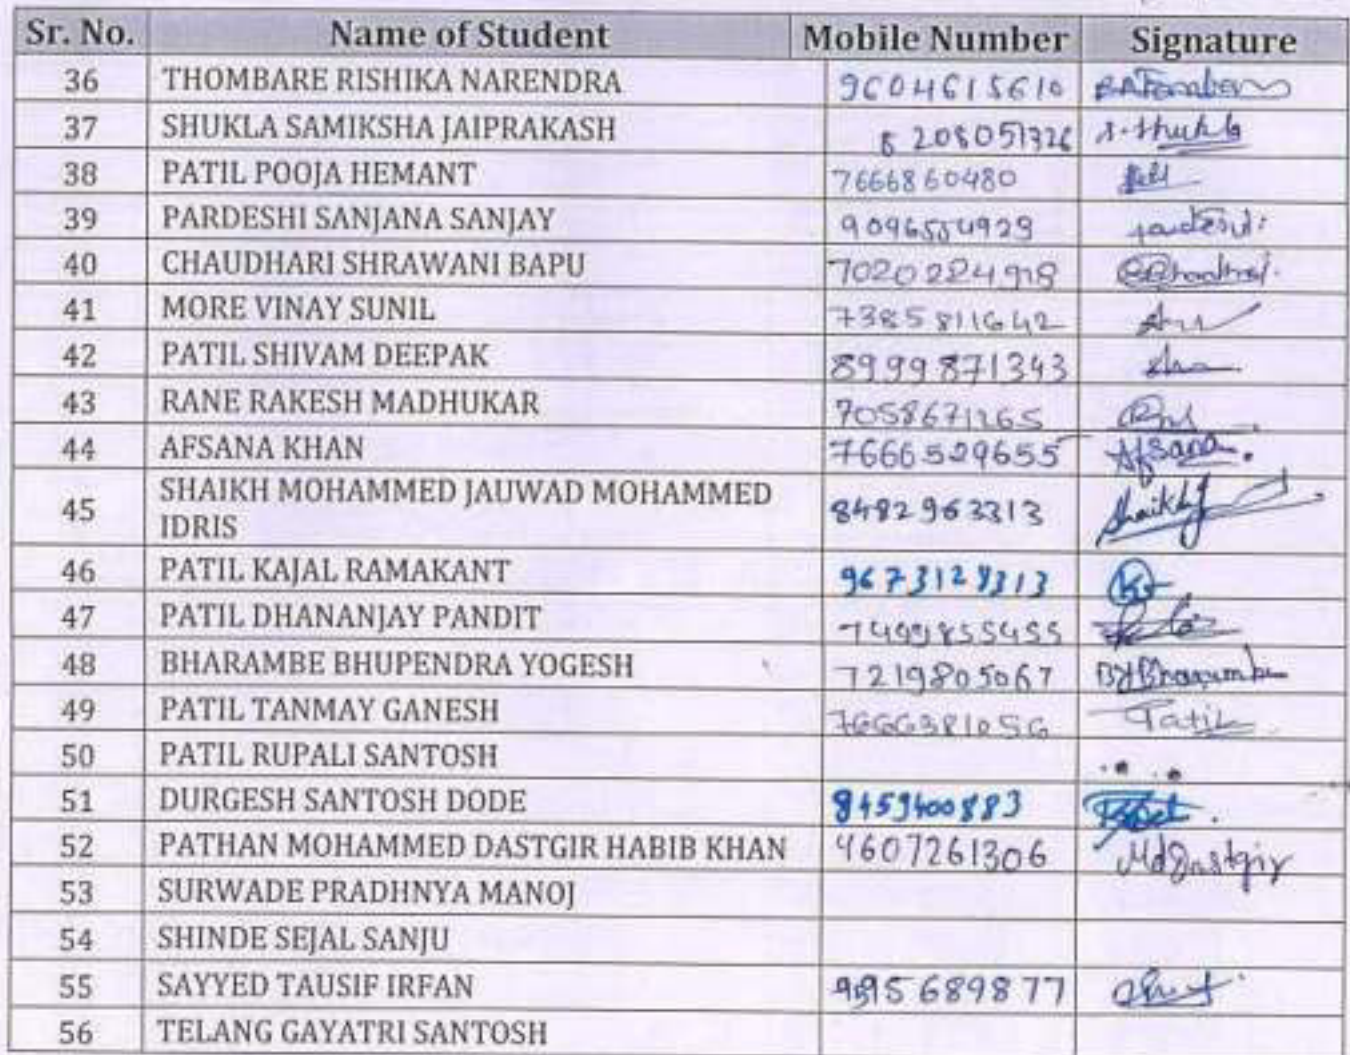 Sr. No. Name of Student Mobile Number Signature
36 THOMBARE RISHIKA NARENDRA 9604615610
37 SHUKLA SAMIKSHA JAIPRAKASH 8208051326 S. Shukla
38 PATIL POOJA HEMANT 7666860480
39 PARDESHI SANJANA SANJAY 9096554929
40 CHAUDHARI SHRAWANI BAPU 7020224918
41 MORE VINAY SUNIL 7385811642
42 PATIL SHIVAM DEEPAK 8999871343
43 RANE RAKESH MADHUKAR 7058671265
44 AFSANA KHAN 7666529655 Afsana.
45 SHAIKH MOHAMMED JAUWAD MOHAMMED
IDRIS 8482963313 Shaikh
46 PATIL KAJAL RAMAKANT 9673128313
47 PATIL DHANANJAY PANDIT 7499855455
48 BHARAMBE BHUPENDRA YOGESH 7219805067
49 PATIL TANMAY GANESH 7666381056 Patil
50 PATIL RUPALI SANTOSH
51 DURGESH SANTOSH DODE 8459400883
52 PATHAN MOHAMMED DASTGIR HABIB KHAN 9607261306 Md Dastgir
53 SURWADE PRADHNYA MANOJ
54 SHINDE SEJAL SANJU
55 SAYYED TAUSIF IRFAN
56 TELANG GAYATRI SANTOSH